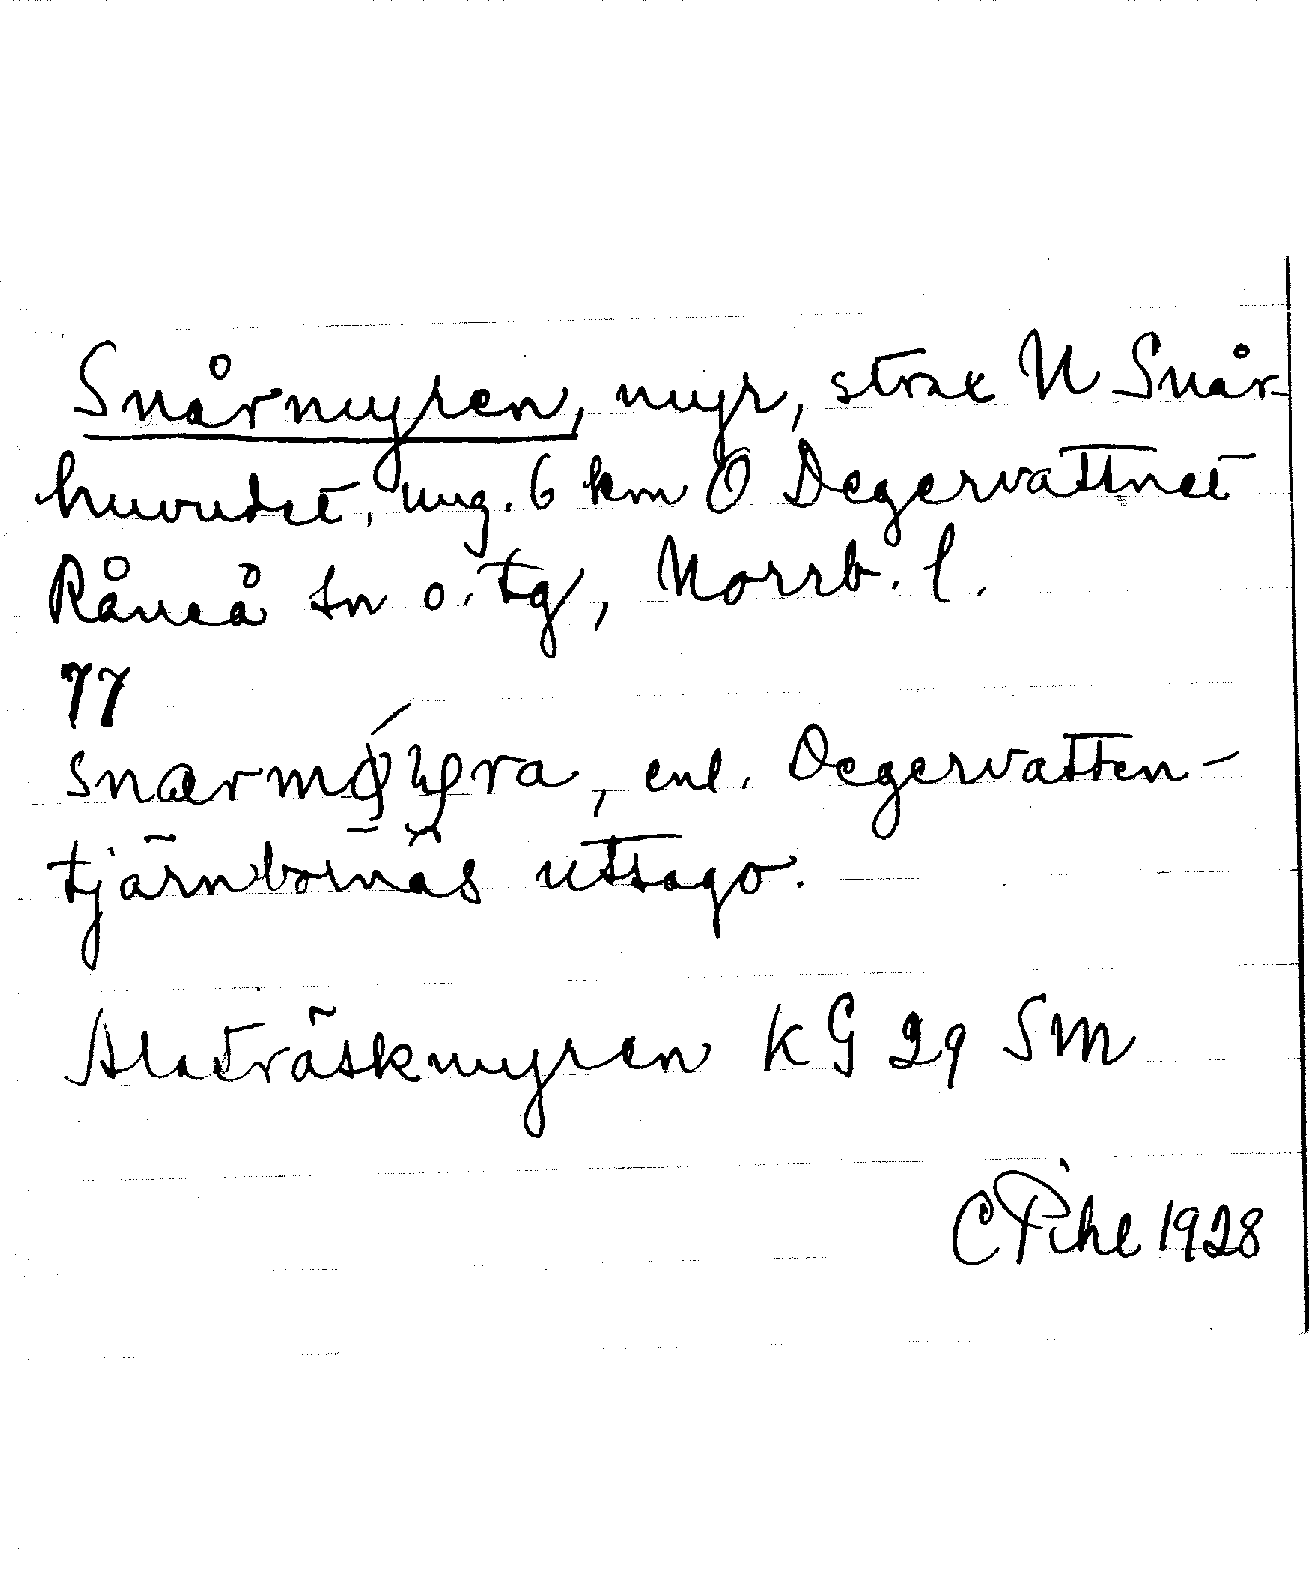 Snårmyren, myr, strax N Snår-
huvudet, ung. 6 km O Degervattnet
Råneå sn o. tg, Norrb. l.
77
enl. Degervatten-
tjärnbornas uttago.
Alaträskmyren KG 29 SM
C Pihl 1928